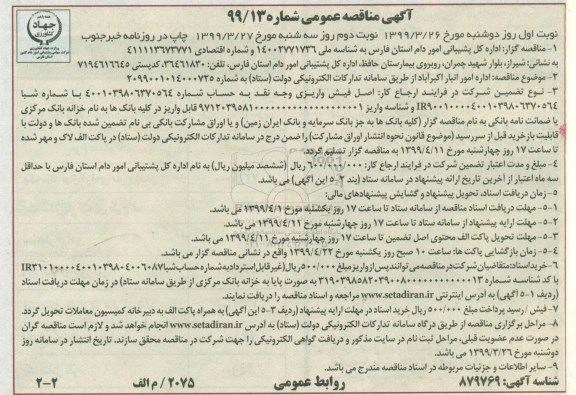 آگهی مناقصه عمومی شماره ۹۹/۱۳
نوبت اول روز دوشنبه مورخ ۱۳۹۹/۳/۲۶ نوبت دوم روز سه شنبه مورخ ۱۳۹۹/۳/۲۷ چاپ در روزنامه خبرجنوب
۱- مناقصه گزار: اداره کل پشتیبانی امور دام استان فارس به شناسه ملی ۱۴۰۰۲۷۷۱۷۳۶ و شماره اقتصادی ۴۱۱۱۱۳۶۷۳۷۷۱
به نشانی: شیراز، بلوار شهید چمران، روبروی بیمارستان حافظ، اداره کل پشتیبانی امور دام استان فارس، تلفن: ۳۶۴۶۱۸۳۰، کدپستی ۷۱۹۴۶۱۱۶۴۵
۲- موضوع مناقصه: اداره امور انبار اکبرآباد از طریق سامانه تدارکات الکترونیکی دولت (ستاد) به شماره ۲۰۹۹۰۰۱۰۱۴۰۰۰۷۲۵
۳- نوع تضمین شرکت در فرایند ارجاع کار: اصل فیش واریزی وجه نقد به حساب شماره ۴۰۰۱۰۳۹۸۰۶۳۷۰۵۶۴ با شماره شبا
و شناسه واریز قابل واریز در کلیه بانک ها به نام خزانه بانک مرکزی
یا ضمانت نامه بانکی به نام مناقصه گزار (کلیه بانک ها به جز بانک سرمایه و بانک ایران زمین) و یا اوراق مشارکت بانکی بی نام تضمین شده بانک ها و دولت با
قابلیت بازخرید قبل از سررسید (موضوع قانون نحوه انتشار اوراق مشارکت) را ضمن درج در سامانه تدارکات الکترونیکی دولت (ستاد) در پاکت الف لاک و مهر شده
تا ساعت ۱۷ روز چهارشنبه مورخ ۱۳۹۹/۴/۱۱ به مناقصه گزار تسلیم گردد.
۴- مبلغ و مدت اعتبار تضمین شرکت در فرایند ارجاع کار: ۶۰۰/۰۰۰/۰۰۰ ریال (ششصد میلیون ریال) به نام اداره کل پشتیبانی امور دام استان فارس با حداقل
سه ماه اعتبار از آخرین تاریخ ارائه پیشنهاد در سامانه ستاد (بند ۲-۵ این آگهی) می باشد.
۵- زمان دریافت اسناد، تحویل پیشنهاد و گشایش پیشنهادهای مالی:
۱-۵- مهلت دریافت اسناد مناقصه از سامانه ستاد تا ساعت ۱۷ روز یکشنبه مورخ ۱۳۹۹/۴/۱ می باشد.
۲-۵- مهلت ارایه پیشنهاد از سامانه ستاد تا ساعت ۱۷ روز چهارشنبه مورخ ۱۳۹۹/۴/۱۱ می باشد.
۳-۵- مهلت تحویل پاکت الف محتوی اصل تضمین تا ساعت ۱۷ روز چهارشنبه مورخ ۱۳۹۹/۴/۱۱ می باشد.
۴-۵- زمان بازگشایی پاکت ها: ساعت ۱۰ صبح روز یکشنبه مورخ ۱۳۹۹/۴/۲۲ واقع در نشانی مناقصه گزار می باشد.
۶- خرید اسناد: متقاضیان شرکت در مناقصه می توانند پس از واریز مبلغ ۵۰۰/۰۰۰ ریال (غیر قابل استرداد) به شماره حساب شبا
با کد شناسه شماره به صورت پایا به خزانه بانک مرکزی از طریق سامانه ستاد) در زمان مهلت دریافت اسناد
(ردیف ۱-۵ آگهی) به آدرس اینترنتی www.setadiran.ir مراجعه و اسناد مناقصه را دریافت نمایند.
۷- فیش / رسید پرداخت مبلغ ۵۰۰/۰۰۰ ریال خرید اسناد در مهلت ارایه پیشنهاد (ردیف ۳-۵ این آگهی) به همراه پاکت الف به دبیرخانه کمیسیون معاملات تحویل گردد.
۸- مراحل برگزاری مناقصه از طریق درگاه سامانه تدارکات الکترونیکی دولت (ستاد) به آدرس www.setadiran.ir انجام خواهد شد و لازم است مناقصه گران
در صورت عدم عضویت قبلی، مراحل ثبت نام در سایت مذکور و دریافت گواهی الکترونیکی را جهت شرکت در مناقصه محقق سازند. تاریخ انتشار در سامانه روز
دوشنبه مورخ ۱۳۹۹/۳/۲۶ می باشد.
۹- سایر اطلاعات و جزئیات مربوطه در اسناد مناقصه مندرج می باشد.
شناسه آگهی: ۸۷۹۷۶۹ روابط عمومی ۲۰۷۵ / م الف ۲-۲